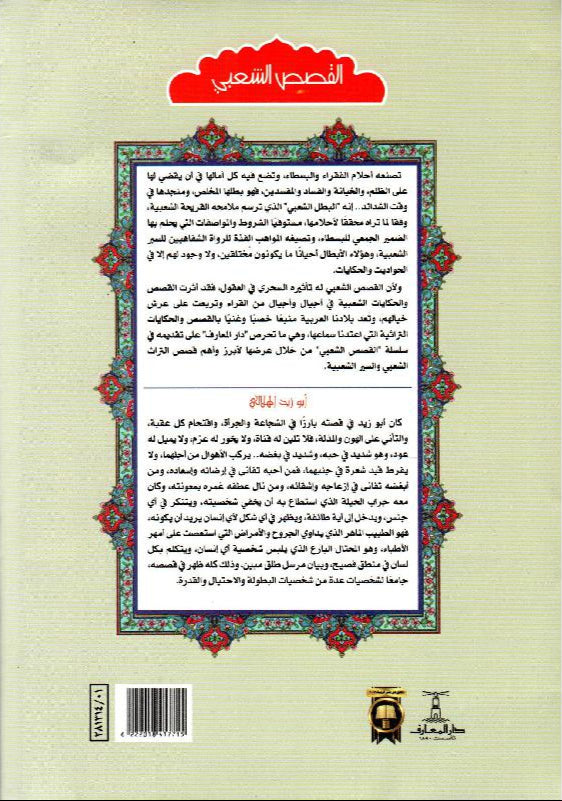 القصص الشعبي
تصنعه أحلام الفقراء والبسطاء، وتضع فيه كل آمالها في أن يقضي لها
على الظلم، والخيانة والفساد والمفسدين، فهو بطلها المخلص، ومنجدها في
وقت الشدائد.. إنه "البطل الشعبي" الذي ترسم ملامحه القريحة الشعبية،
وفقا لما تراه محققا لأحلامها، مستوفيا الشروط والمواصفات التي يحلم بها
الضمير الجمعي للبسطاء، وتصيغه المواهب الفذة للرواة الشفاهيين للسير
الشعبية، وهؤلاء الأبطال أحيانًا ما يكونون مختلقين، ولا وجود لهم إلا في
الحواديت والحكايات.
ولأن القصص الشعبي له تأثيره السحري في العقول، فقد أثرت القصص
والحكايات الشعبية في أجيال وأجيال من القراء وتربعت على عرش
خيالهم، وتعد بلادنا العربية منبعًا خصبًا وغنيًا بالقصص والحكايات
التراثية التي اعتدنا سماعها، وهي ما تحرص "دار المعارف" على تقديمه في
سلسلة "القصص الشعبي" من خلال عرضها لأبرز وأهم قصص التراث
الشعبي والسير الشعبية.
أبو زيد الهلالي
كان أبو زيد في قصته بارزًا في الشجاعة والجرأة، واقتحام كل عقبة،
والتأني على الهون والمذلة، فلا تلين له قناة، ولا يخور له عزم، ولا يميل له
عود، وهو شديد في حبه، وشديد في بغضه.. يركب الأهوال من أجلهما، ولا
يفرط قيد شعرة في جنبهما، فمن أحبه تفانى في إرضائه وإسعاده، ومن
أبغضه تفانى في إزعاجه وإشقائه، ومن نال عطفه غمره بمعونته، وكان
معه جراب الحيلة الذي استطاع به أن يخفي شخصيته، ويتنكر في أي
جنس، ويدخل إلى أية طائفة، ويظهر في أي شكل لأي إنسان يريد أن يكونه،
فهو الطبيب الماهر الذي يداوي الجروح والأمراض التي استعصت على أمهر
الأطباء، وهو المحتال البارع الذي يلبس شخصية أي إنسان، ويتكلم بكل
لسان في منطق فصيح، وبيان مرسل طلق مبين، وذلك كله ظهر في قصصه،
جامعًا لشخصيات عدة من شخصيات البطولة والاحتيال والقدرة.
دار المعارف
تأسست ١٨٩٠
٢٨١٣١٤/٠١